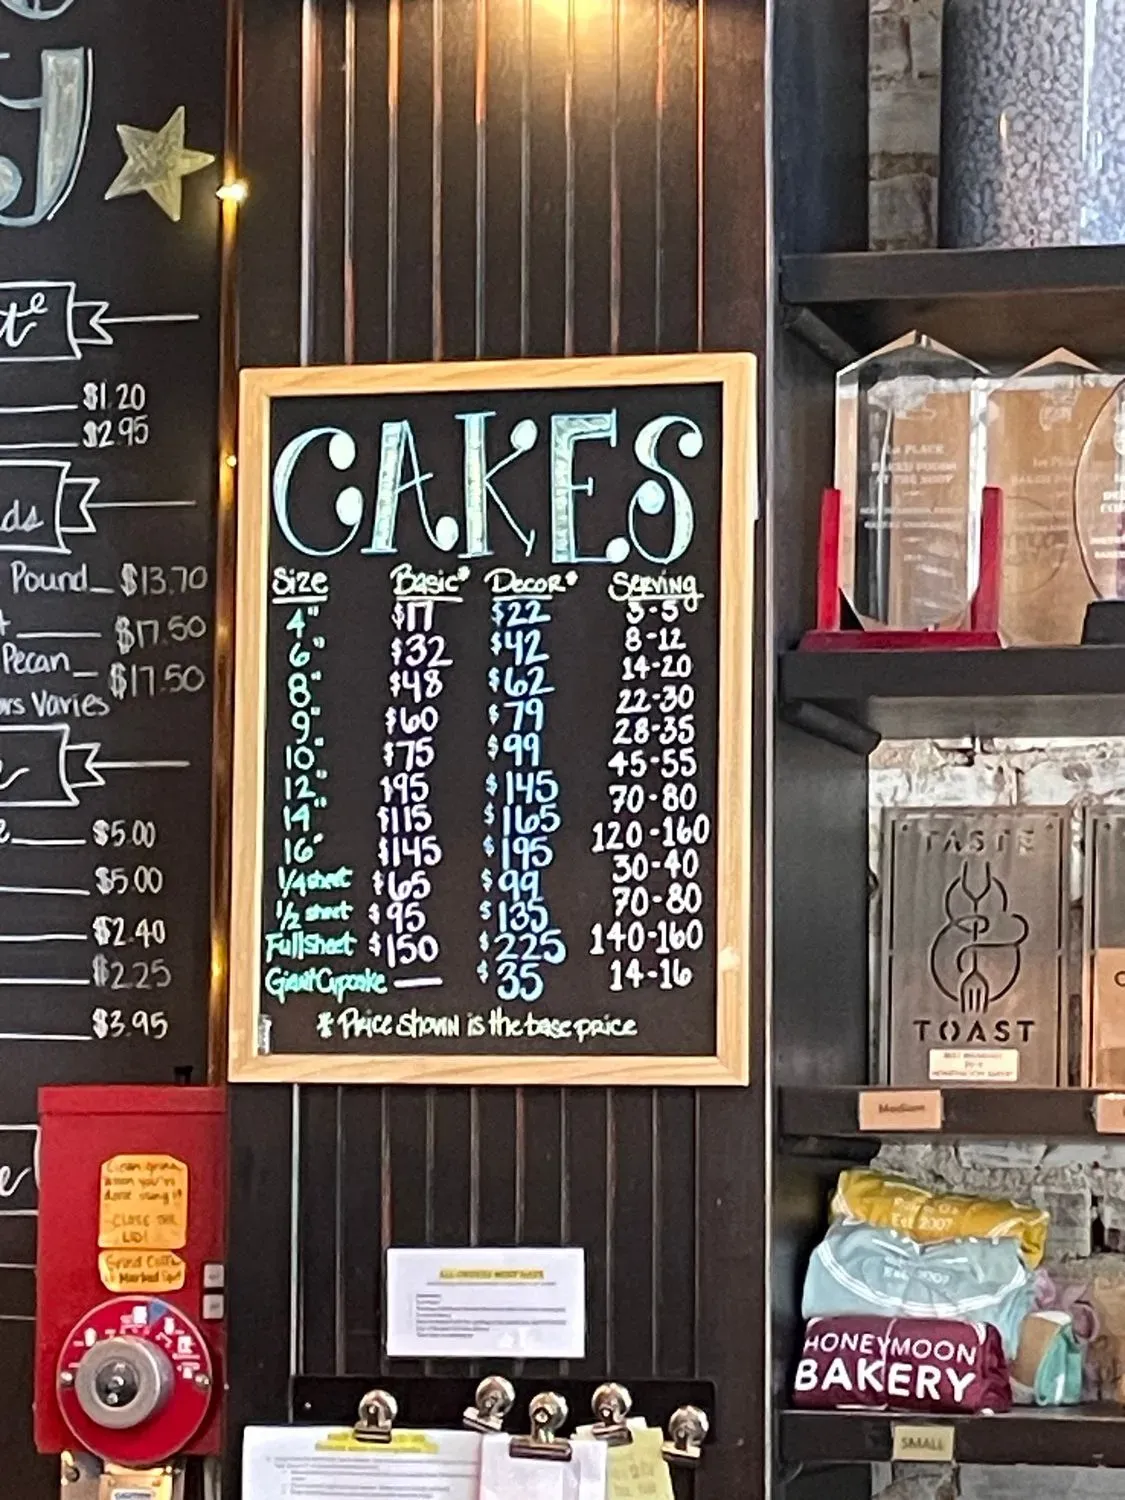 $1.20
$2.95
ds
Pound $13.70
$17.50
Pecan $17.50
Varies
$5.00
$5.00
$2.40
$2.25
$3.95
CAKES
Size Basic* Decor* Serving
4" $17 $22 3-5
6" $32 $42 8-12
8" $48 $62 14-20
9" $60 $79 22-30
10" $75 $99 28-35
12" $95 $145 45-55
14" $115 $165 70-80
16" $145 $195 120-160
1/4 sheet $65 $99 30-40
1/2 sheet $95 $135 70-80
Full Sheet $150 $225 140-160
Giant Cupcake — $35 14-16
* Price shown is the base price
1st PLACE
BAKED GOODS
AT THE SHOP
TASTE
TOAST
Medium
Est. 2007
HONEYMOON
BAKERY
SMALL
Clean grinder
when you're
done using it
CLOSE THE
LID!